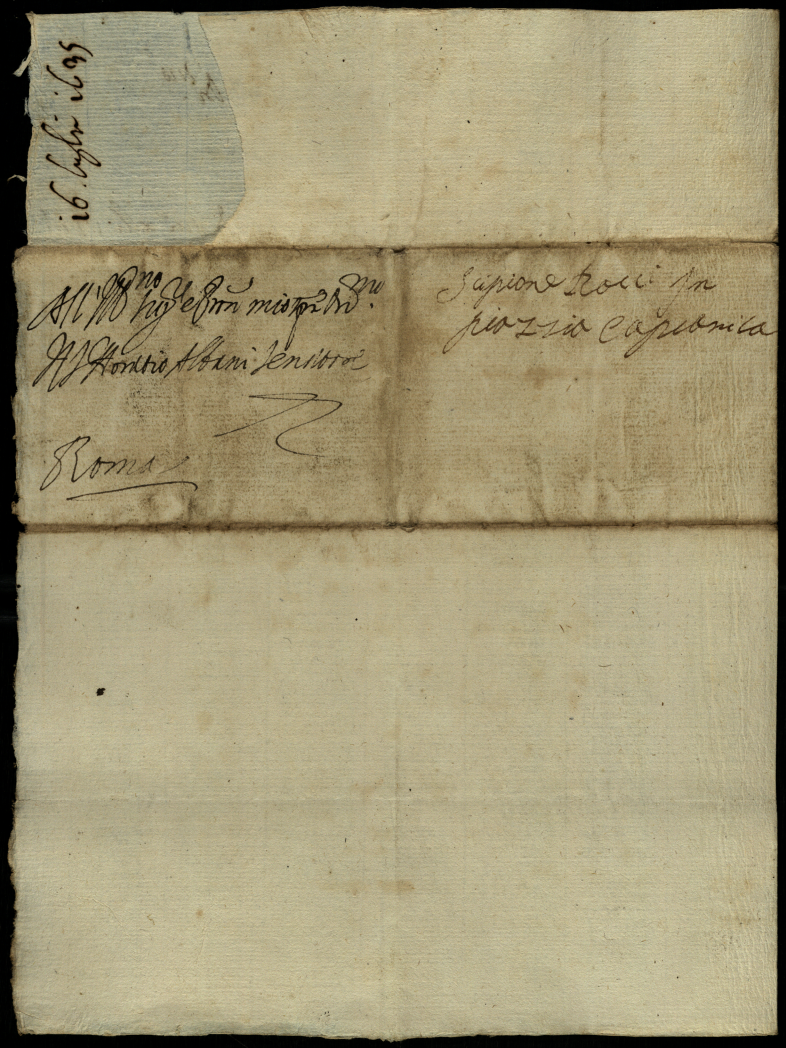 16. luglio 1635
All' Ill.mo
Sig.re e Pron mio
Horatio Albani Senatore
Roma
Scipione Rocci Jn
piazzia Capranica